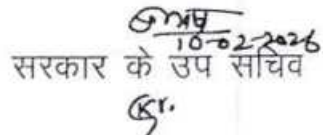 10-02-2026
सरकार के उप सचिव
Kr.